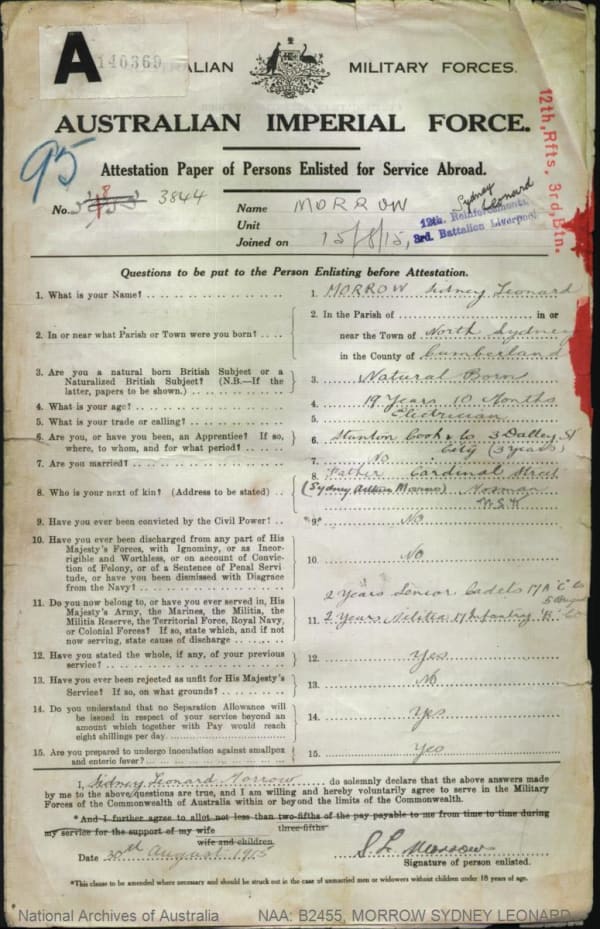 A
140369
ALIAN MILITARY FORCES.
AUSTRALIAN IMPERIAL FORCE.
12th, Rfts. 3rd, Btn.
95
Attestation Paper of Persons Enlisted for Service Abroad.
No. 3844
Name MORROW Sydney Leonard
Unit 12th. Reinforcements, 3rd. Battalion Liverpool
Joined on 15/8/15,
Questions to be put to the Person Enlisting before Attestation.
1. What is your Name? 1. MORROW Sidney Leonard
2. In or near what Parish or Town were you born? 2. In the Parish of in or
near the Town of North Sydney
in the County of Cumberland
3. Are you a natural born British Subject or a
Naturalized British Subject? (N.B.—If the
latter, papers to be shown.) 3. Natural Born
4. What is your age? 4. 19 Years 10 Months
5. What is your trade or calling? 5. Electrician
6. Are you, or have you been, an Apprentice? If so,
where, to whom, and for what period? 6. Stanton Cook & Co 3 Dalley St
City (3 years)
7. Are you married? 7. No
8. Who is your next of kin? (Address to be stated) 8. Father Cardinal Street
(Sydney Arthur Morrow) Mosman
N.S.W
9. Have you ever been convicted by the Civil Power? 9. No
10. Have you ever been discharged from any part of His
Majesty's Forces, with Ignominy, or as Incor-
rigible and Worthless, or on account of Convic-
tion of Felony, or of a Sentence of Penal Servi-
tude, or have you been dismissed with Disgrace
from the Navy? 10. No
11. Do you now belong to, or have you ever served in, His
Majesty's Army, the Marines, the Militia, the
Militia Reserve, the Territorial Force, Royal Navy,
or Colonial Forces? If so, state which, and if not
now serving, state cause of discharge 11. 2 Years Senior Cadets 17A "C" Co
2 Years Militia 17 Infantry Co
12. Have you stated the whole, if any, of your previous
service? 12. Yes
13. Have you ever been rejected as unfit for His Majesty's
Service? If so, on what grounds? 13. No
14. Do you understand that no Separation Allowance will
be issued in respect of your service beyond an
amount which together with Pay would reach
eight shillings per day 14. Yes
15. Are you prepared to undergo inoculation against smallpox
and enteric fever? 15. Yes
I, Sidney Leonard Morrow do solemnly declare that the above answers made
by me to the above questions are true, and I am willing and hereby voluntarily agree to serve in the Military
Forces of the Commonwealth of Australia within or beyond the limits of the Commonwealth.
*And I further agree to allot not less than two-fifths of the pay payable to me from time to time during
three-fifths
my service for the support of my wife
wife and children.
Date 30th August 1915 S. L. Morrow
Signature of person enlisted.
*This clause to be amended where necessary and should be struck out in the case of unmarried men or widowers without children under 18 years of age.
National Archives of Australia NAA: B2455, MORROW SYDNEY LEONARD